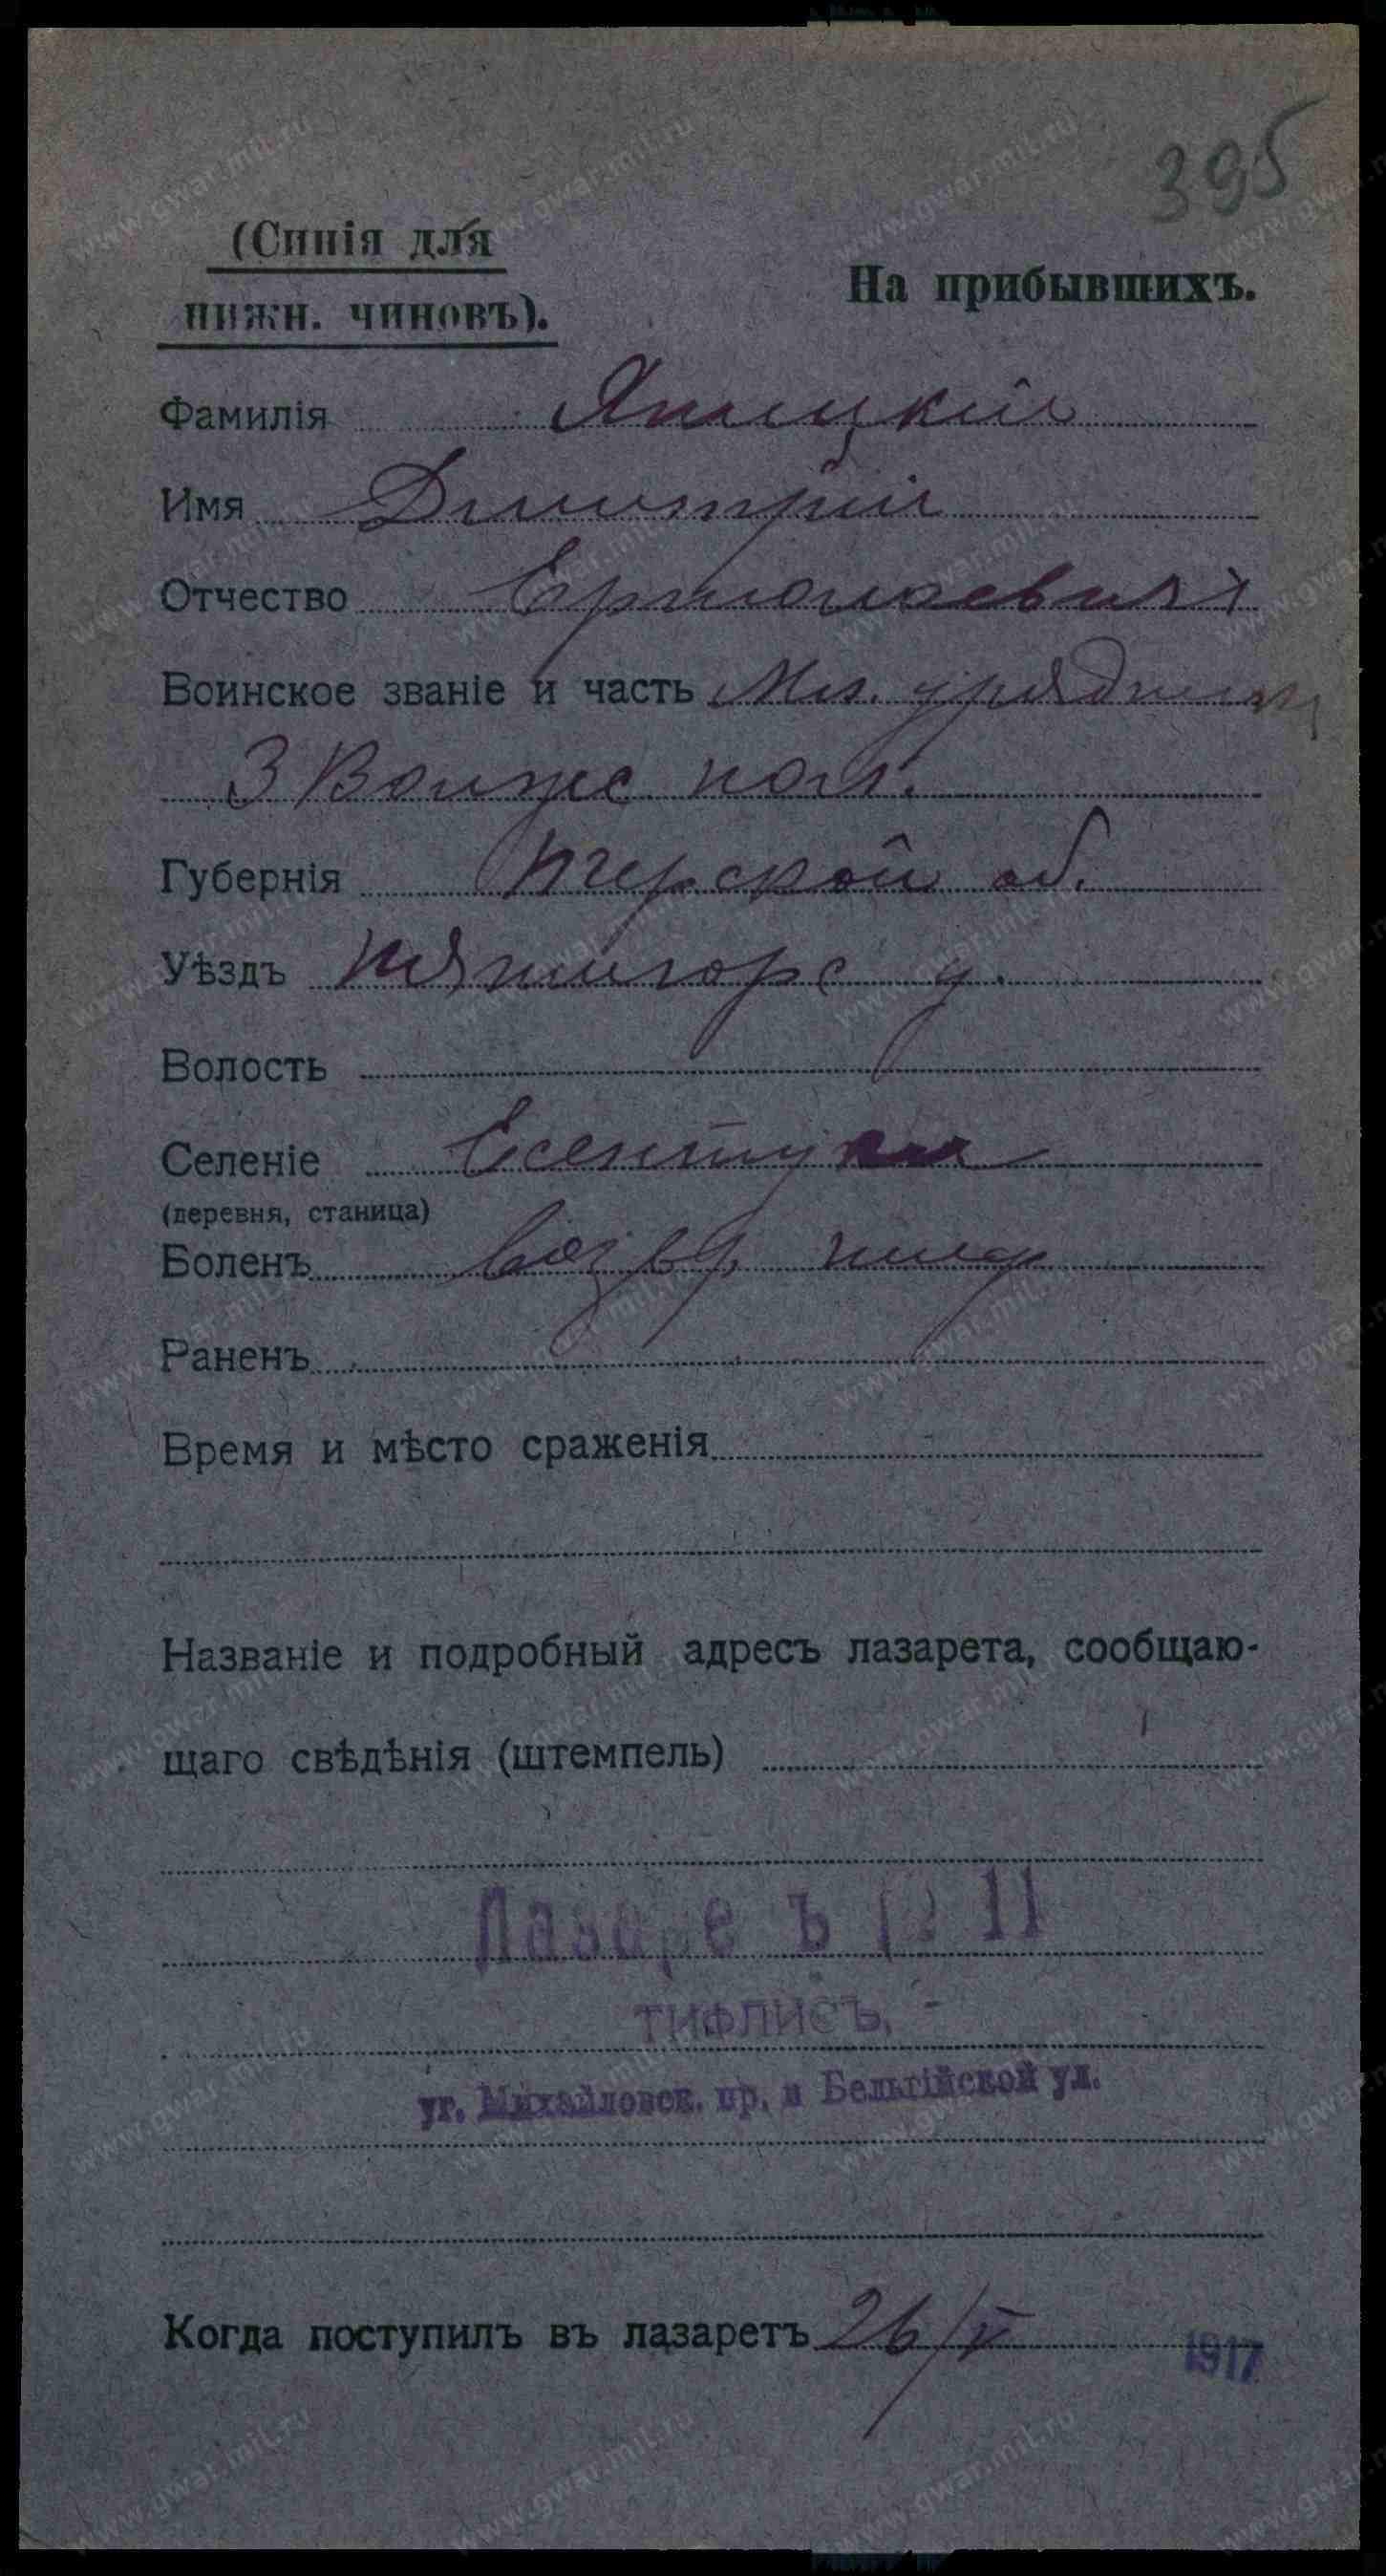 395
(Синія для
нижн. чиновъ).
На прибывшихъ.
Фамилія Яницкій
Имя Димитрій
Отчество Ермолаевичъ
Воинское званіе и часть Мл. урядник
3 Волжс пол.
Губернія Терской об.
Уѣздъ Пятигорс у.
Волость
Селеніе Есентуки
(деревня, станица)
Боленъ возвр. тиф
Раненъ
Время и мѣсто сраженія
Названіе и подробный адресъ лазарета, сообщаю-
щаго свѣдѣнія (штемпель)
Лазаре ъ № 11
ТИФЛИСЪ,
уг. Михайловск. пр. и Бельгійской ул.
Когда поступилъ въ лазаретъ 26/V 1917
www.gwar.mil.ru